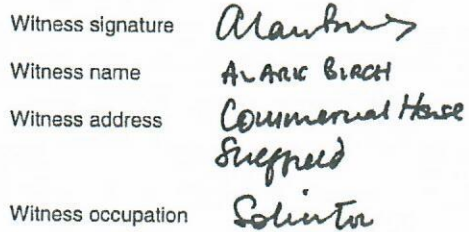 Witness signature
Witness name ALARIC BIRCH
Witness address Commercial House
Sheffield
Witness occupation Solicitor